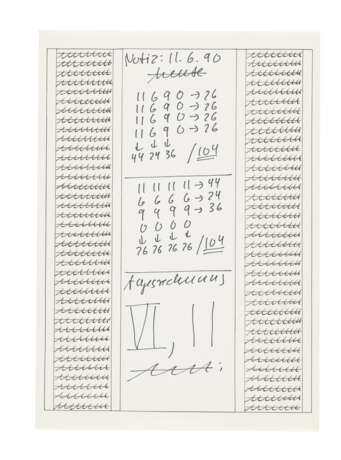 Notiz: 11.6.90
heute
11 6 9 0 → 26
11 6 9 0 → 26
11 6 9 0 → 26
11 6 9 0 → 26
↓ ↓ ↓
44 24 36 /104
11 11 11 11 → 44
6 6 6 6 → 24
9 9 9 9 → 36
0 0 0 0
↓ ↓ ↓ ↓
26 26 26 26 /104
tagesrechnung
VI, 11